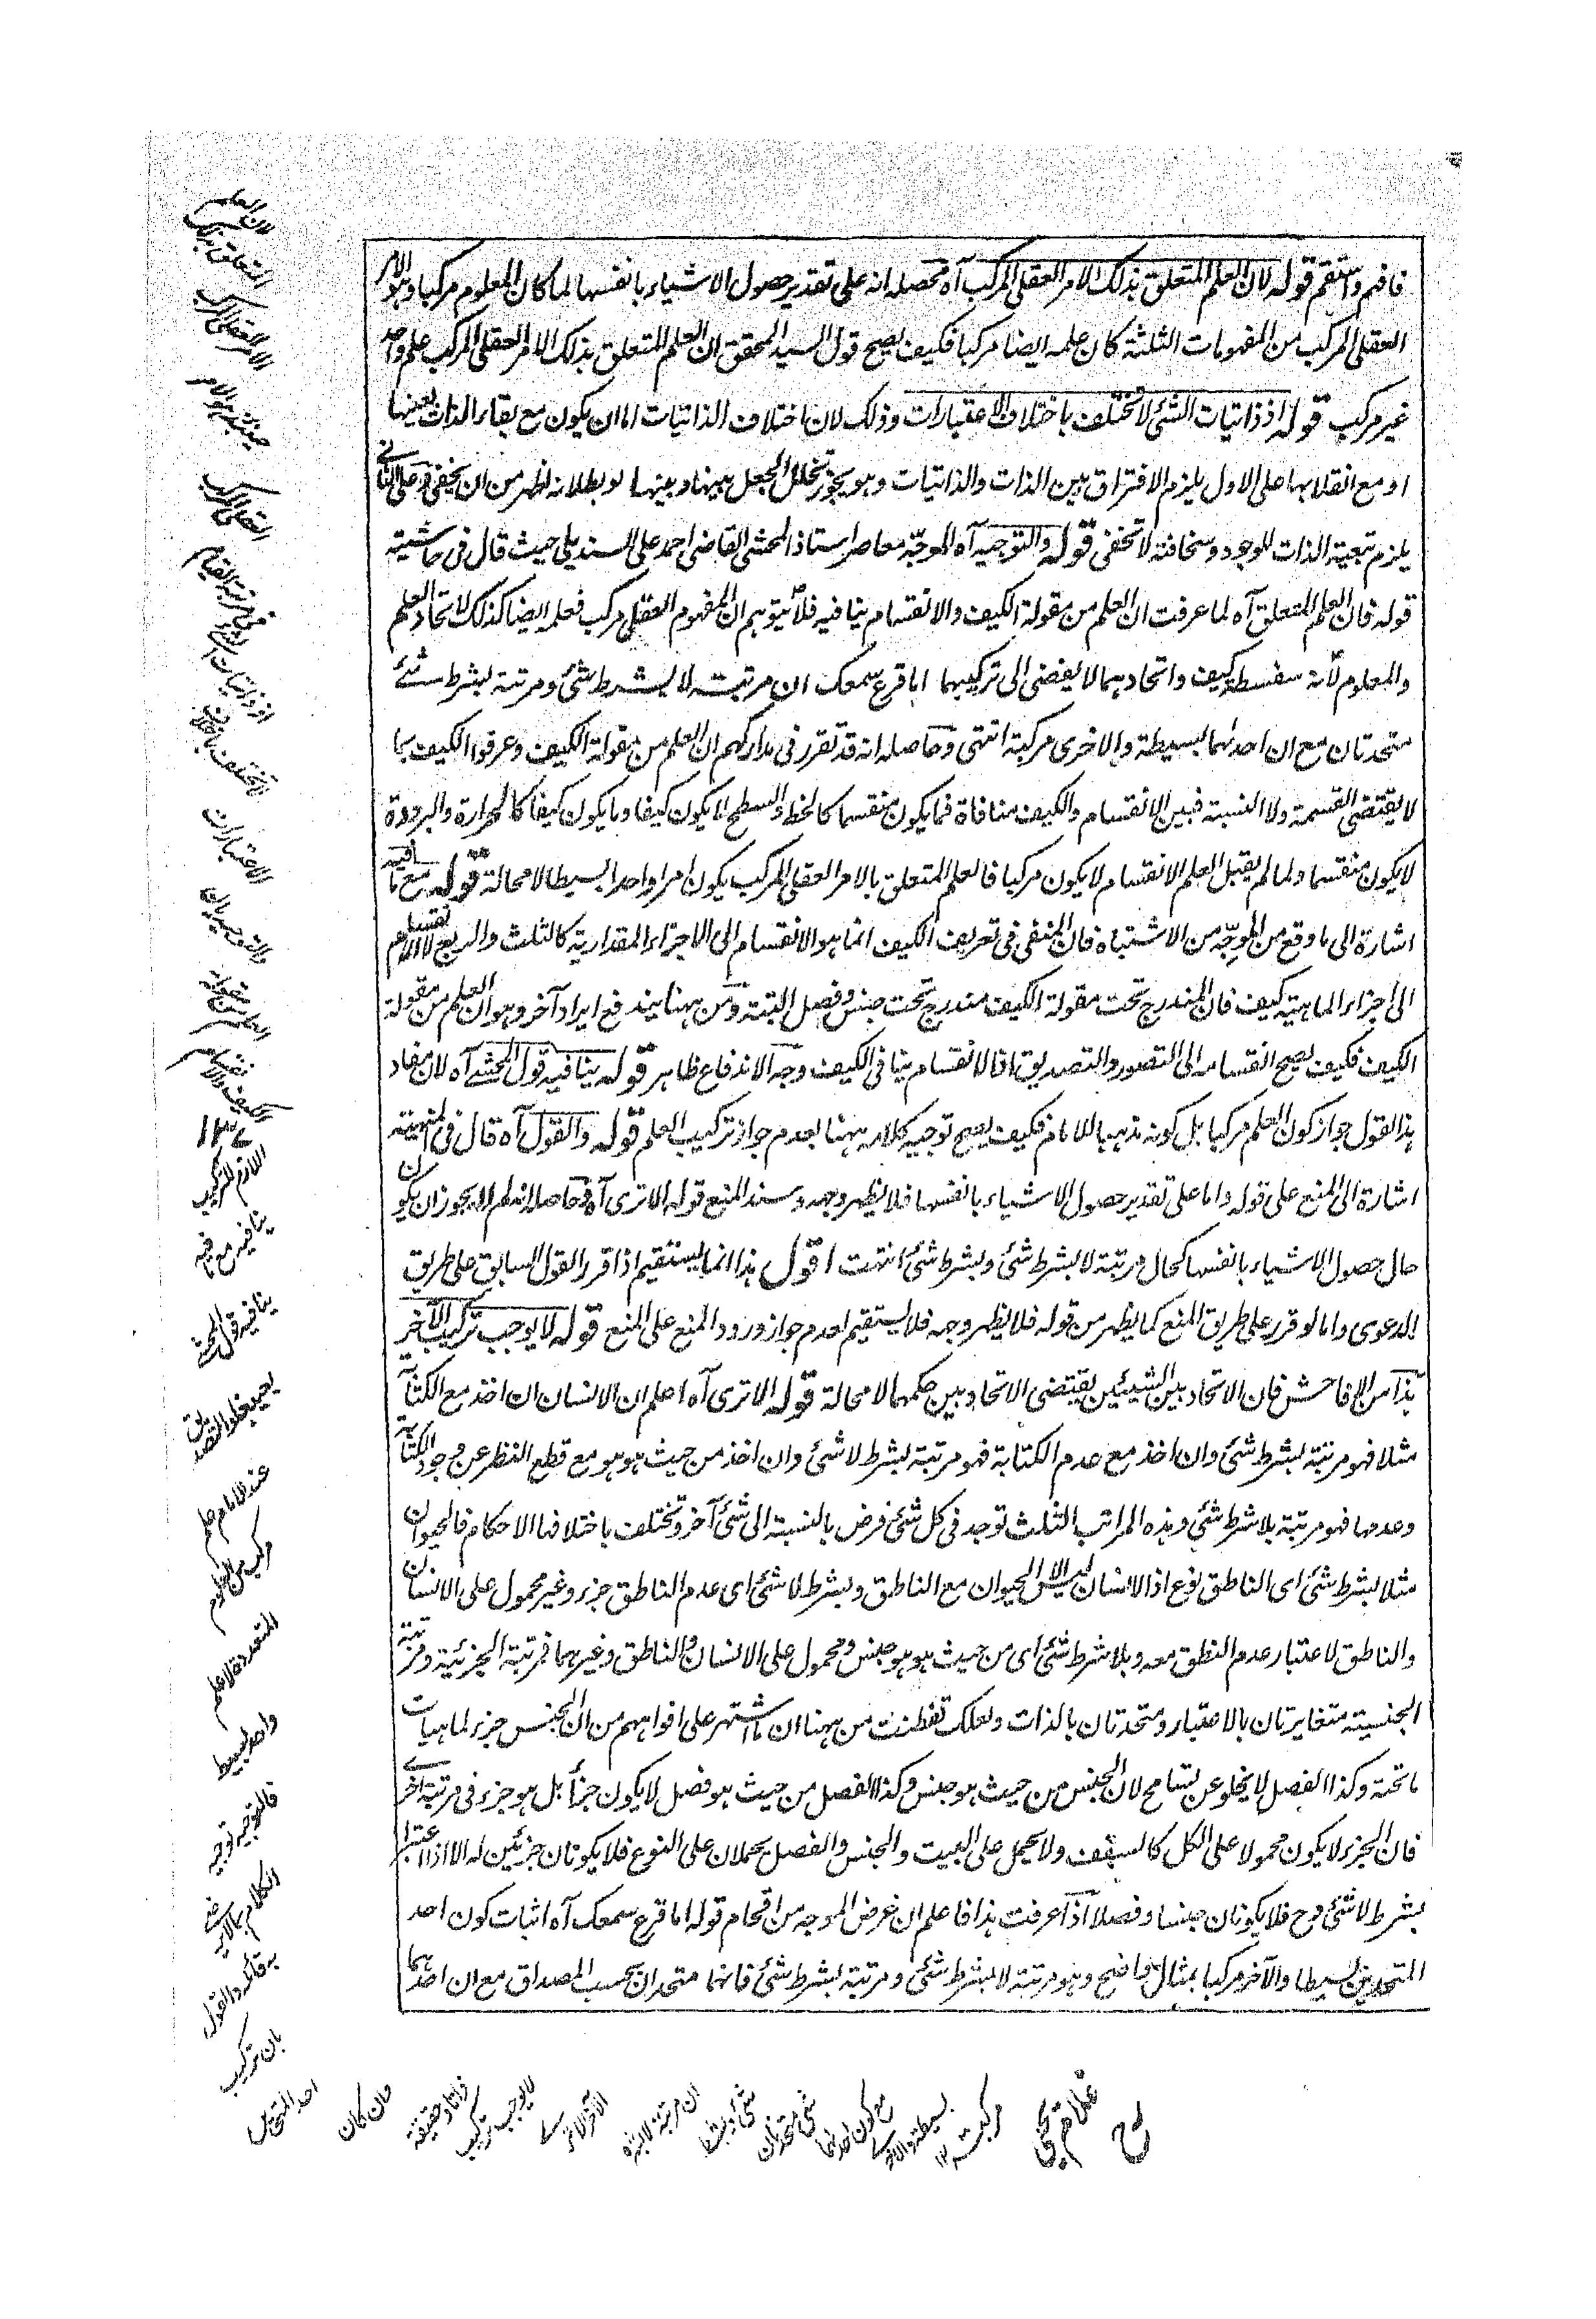 فافهم واستقم قوله لان العلم المتعلق بذلك الامر العقلى المركب آه محصله انه على تقدير حصول الاشياء بانفسها لما كان المعلوم مركبا وهو الامر
العقلى المركب من المفهومات الثلثة كان علمه ايضا مركبا فكيف يصح قول السيد المحقق ان العلم المتعلق بذلك الامر العقلى المركب علم واحد
غير مركب قوله اذ ذاتيات الشئ لا تختلف باختلاف الاعتبارات وذلك لان اختلاف الذاتيات اما ان يكون مع بقاء الذات بعينها
او مع انقلابها على الاول يلزم الافتراق بين الذات والذاتيات وهو يجوز تخلل الجعل بينها وبينها وبطلانه اظهر من ان يخفى وعلى الثانى
يلزم تبعية الذات للوجود وسخافته لا تخفى قوله والتوجيه آه الموجه معاصر استاذ المحشى القاضى احمد على السنديلى حيث قال فى حاشيته
قوله فان العلم المتعلق آه لما عرفت ان العلم من مقولة الكيف والانقسام ينافيه فلا يتوهم ان المفهوم العقلى مركب فعلمه ايضا كذلك لاتحاد العلم
والمعلوم لانه سفسطة كيف واتحادهما لا يفضى الى تركيبهما اما قرع سمعك ان مرتبة لا بشرط شئ ومرتبة بشرط شئ
متحدتان مع ان احدهما بسيطة والاخرى مركبة انتهى وحاصله انه قد تقرر فى مداركهم ان العلم من مقولة الكيف وعرفوا الكيف بما
لا يقتضى القسمة ولا النسبة فبين الانقسام والكيف منافاة فما يكون منقسما كالخط والسطح لا يكون كيفا وما يكون كيفا كالحرارة والبرودة
لا يكون منقسما ولما لم يقبل العلم الانقسام لا يكون مركبا فالعلم المتعلق بالامر العقلى المركب يكون امرا واحدا بسيطا لا محالة قوله مع ما فيه
اشارة الى ما وقع من الموجه من الاشتباه فان المنفى فى تعريف الكيف انما هو الانقسام الى الاجزاء المقدارية كالثلث والربع لا الانقسام
الى اجزاء الماهية كيف فان المندرج تحت مقولة الكيف مندرج تحت جنس وفصل البتة ومن ههنا يندفع ايراد آخر وهو ان العلم من مقولة
الكيف فكيف يصح انقسامه الى التصور والتصديق اذ الانقسام ينافى الكيف وجه الاندفاع ظاهر قوله ينافيه قول المحشى آه لان مفاد
هذا القول جواز كون العلم مركبا بل كونه مذهبا للامام فكيف يصح توجيه كلامه ههنا بعدم جواز تركيب العلم قوله والقول آه قال فى المنهية
اشارة الى المنع على قوله واما على تقدير حصول الاشياء بانفسها فلا يظهر وجهه وسند المنع قوله الا ترى آه وحاصله انه لم لا يجوز ان يكون
حال حصول الاشياء بانفسها كحال مرتبة لا بشرط شئ وبشرط شئ انتهت اقول هذا انما يستقيم اذا قرر القول السابق على طريق
الدعوى واما لو قرر على طريق المنع كما يظهر من قوله فلا يظهر وجهه فلا يستقيم لعدم جواز ورود المنع على المنع قوله لا يوجب تركيب الآخر
هذا من الافاحش فان الاتحاد بين الشيئين يقتضى الاتحاد بين حكمهما لا محالة قوله الا ترى آه اعلم ان الانسان ان اخذ مع الكتابة
مثلا فهو مرتبة بشرط شئ وان اخذ مع عدم الكتابة فهو مرتبة بشرط لا شئ وان اخذ من حيث هو هو مع قطع النظر عن وجود الكتابة
وعدمها فهو مرتبة بلا شرط شئ وهذه المراتب الثلث توجد فى كل شئ فرض بالنسبة الى شئ آخر وتختلف باختلافها الاحكام فالحيوان
مثلا بشرط شئ اى الناطق نوع اذ الانسان ليس الا الحيوان مع الناطق وبشرط لا شئ اى عدم الناطق جزء وغير محمول على الانسان
والناطق لاعتبار عدم النطق معه وبلا شرط شئ اى من حيث هو هو جنس ومحمول على الانسان والناطق وغيرهما فمرتبة الجزئية ومرتبة
الجنسية متغايرتان بالاعتبار ومتحدتان بالذات ولعلك تفطنت من ههنا ان ما اشتهر على افواههم من ان الجنس جزء لماهيات
ما تحته وكذا الفصل لا يخلو عن تسامح لان الجنس من حيث هو جنس وكذا الفصل من حيث هو فصل لا يكون جزأ بل هو جزء فى مرتبة اخرى
فان الجزء لا يكون محمولا على الكل كالسقف ولا يحمل على البيت والجنس والفصل يحملان على النوع فلا يكونان جزئين له الا اذا اعتبرا
بشرط لا شئ وح فلا يكونان جنسا وفصلا اذا عرفت هذا فاعلم ان غرض الموجه من اقحام قوله اما قرع سمعك آه اثبات كون احد
المتحدين بسيطا والآخر مركبا بمثال واضح وهو مرتبة لا بشرط شئ ومرتبة بشرط شئ فانهما متحدان بحسب المصداق مع ان احدهما
لان العلم
المتعلق بذلك
الامر العقلى المركب
العقلى المركب
فى مرتبة القيام
اذ ذاتيات الشئ
لا تختلف باختلاف
الاعتبارات
والتوجيه بان
العلم من مقولة
الكيف والانقسام
اللازم للتركيب
ينافيه مع ما فيه
ينافيه قول المحشى
فيجعلوا التصديق
عند الامام علم
مركب من العلوم
المتعددة لا علم
واحد بسيط
فالتوجيه توجيه
الكلام بما لا يرضى
به قائله والقول
بان تركيب
احد المتحدين
وان كان
ذاتا وحقيقة
لا يوجب تركيب
الآخر الا ترى
ان مرتبة لا بشرط
شئ وبشرط
شئ متحدتان
مع كون احدهما
بسيطة والاخرى
مركبة ١٢
غلام يحيى